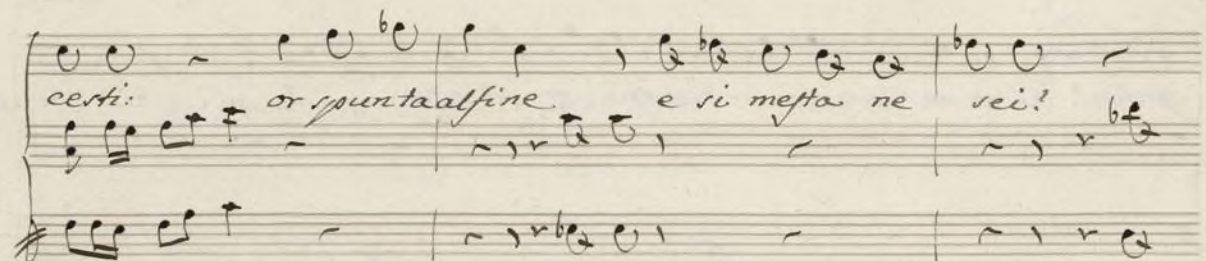 cesti: or spunta alfine e si mesta ne sei?